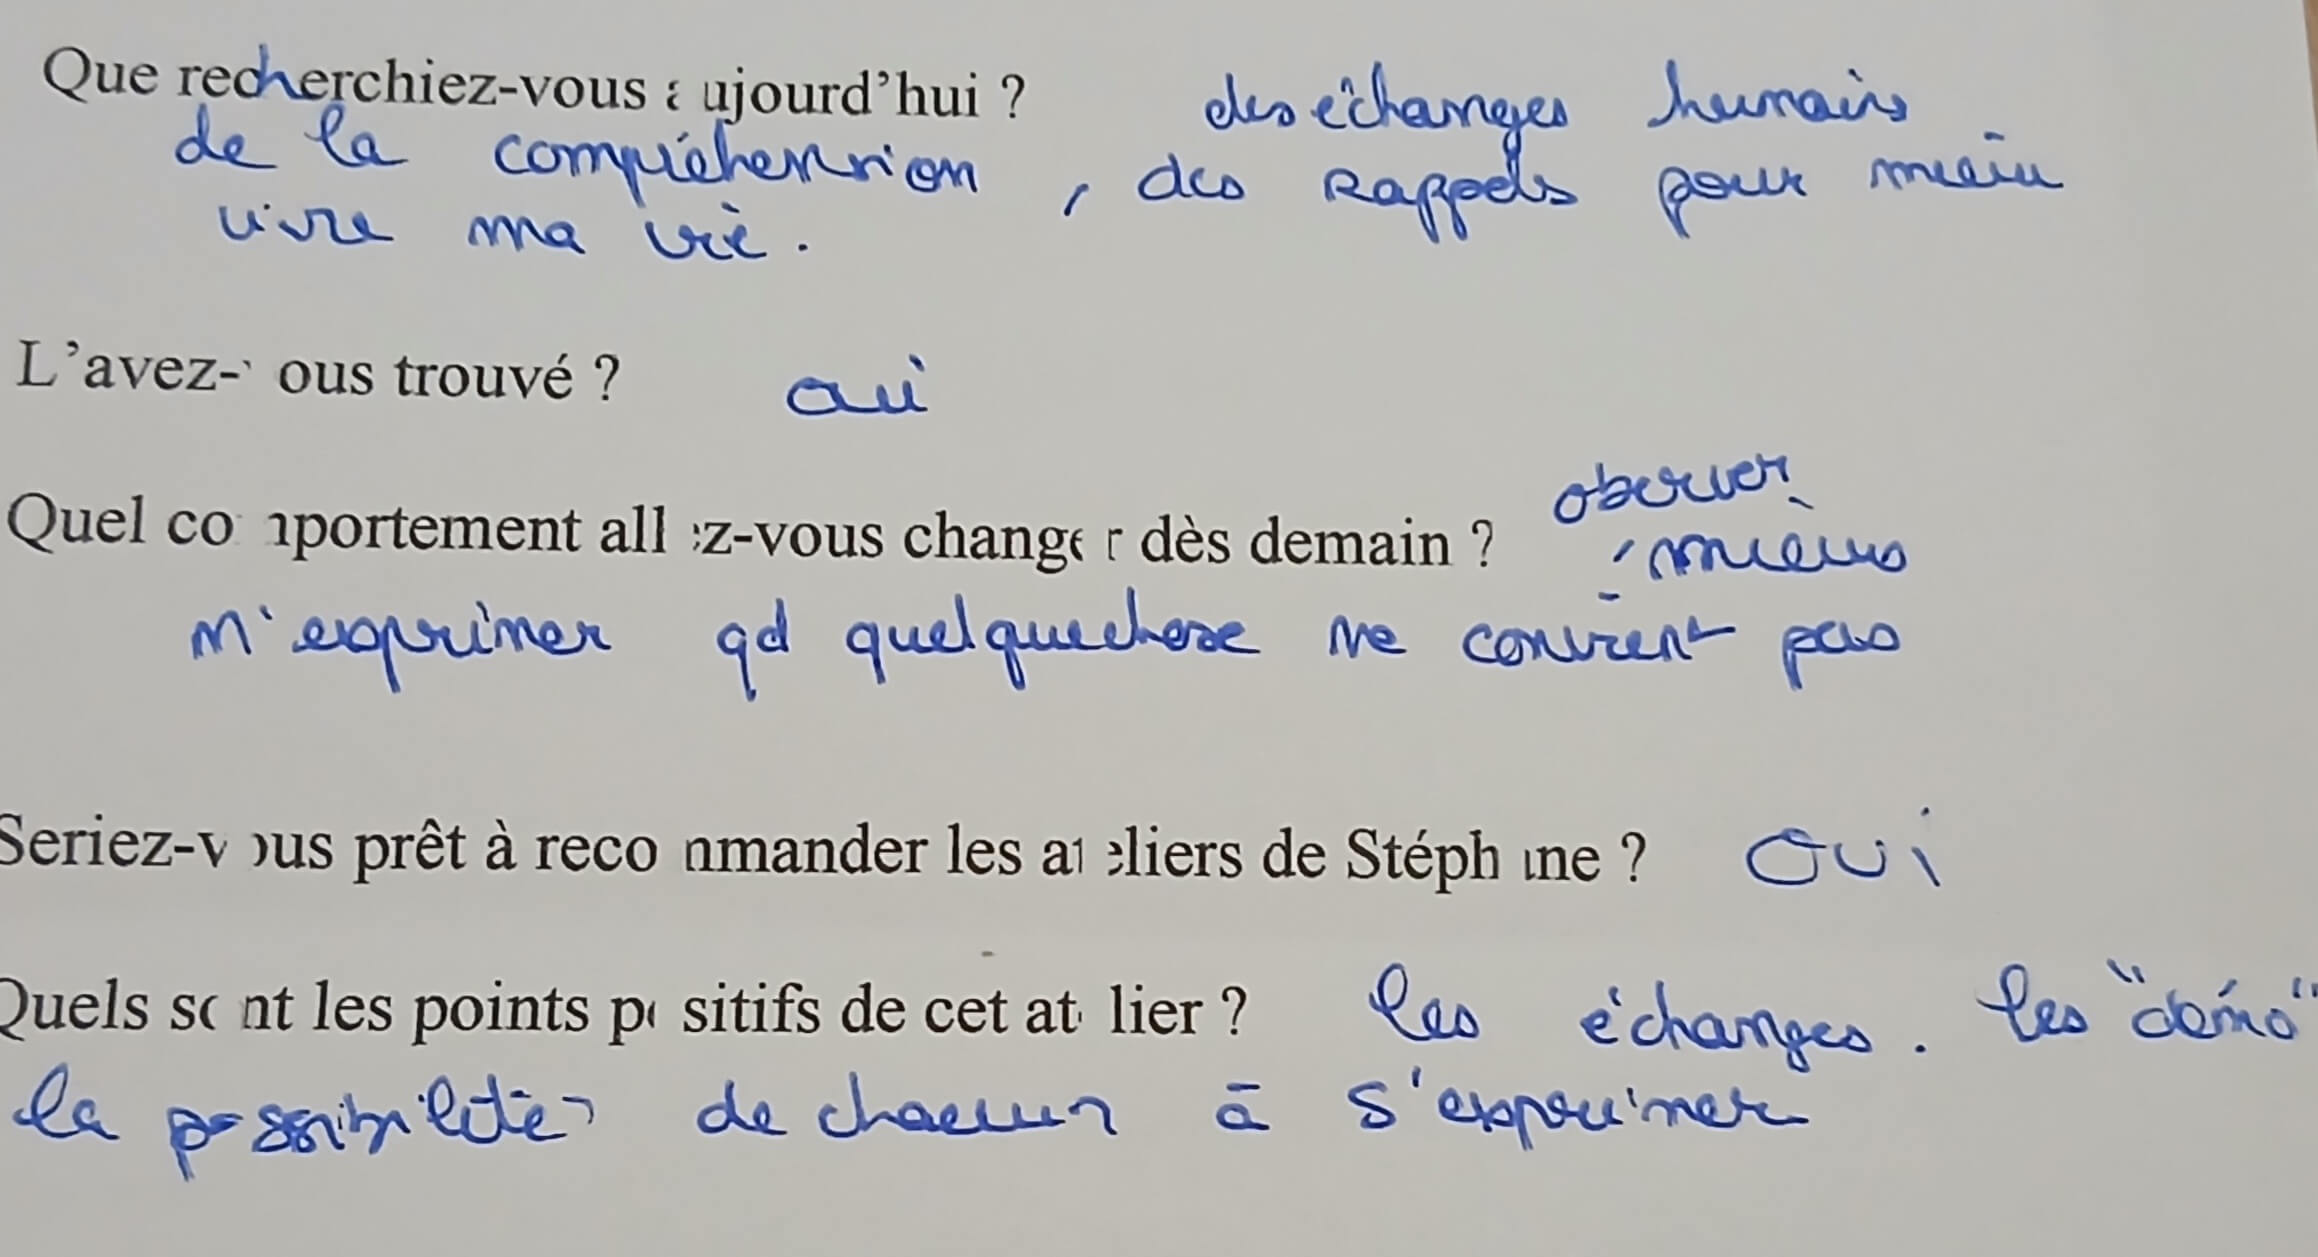 Que recherchiez-vous aujourd'hui ? des échanges humains
de la compréhension, des Rappels pour mieux
vivre ma vie.
L'avez-vous trouvé ? oui
Quel comportement allez-vous changer dès demain ? observer
, mieux
m'exprimer qd quelquechose me convient pas
Seriez-vous prêt à recommander les ateliers de Stéphane ? oui
Quels sont les points positifs de cet atelier ? les échanges. les "démo"
la possibilité de chacun à s'exprimer